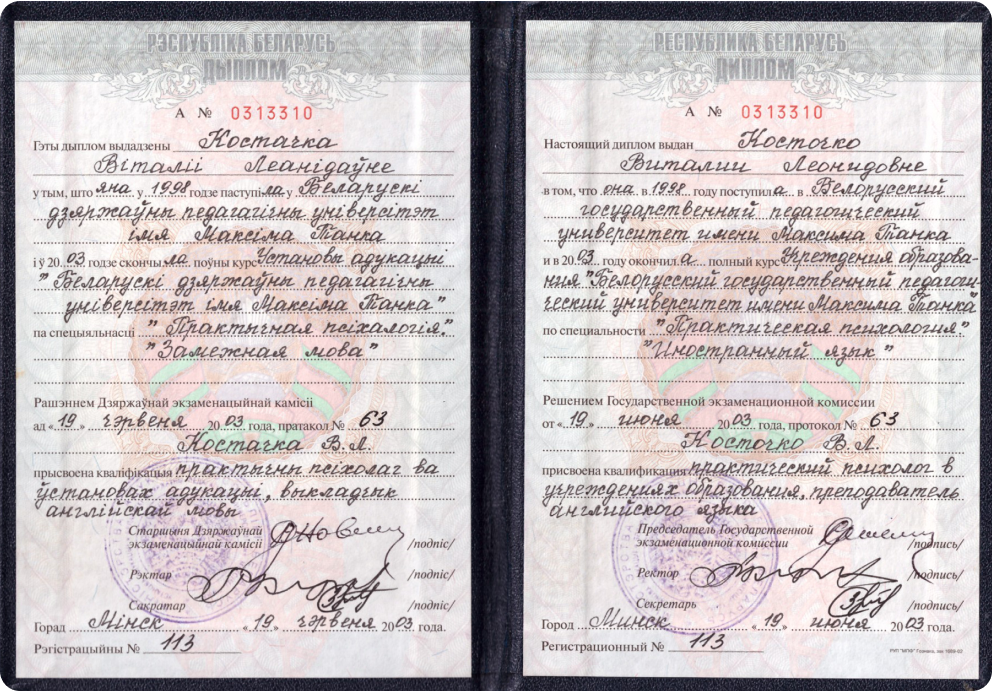 РЭСПУБЛІКА БЕЛАРУСЬ
ДЫПЛОМ
А № 0313310
Гэты дыплом выдадзены Костачка
Віталіі Леанідаўне
у тым, што яна у 1998 годзе паступіла у Беларускі
дзяржаўны педагагічны універсітэт
імя Максіма Танка
і ў 2003 годзе скончыла поўны курс Установы адукацыі
"Беларускі дзяржаўны педагагічны
універсітэт імя Максіма Танка"
па спецыяльнасці "Практычная псіхалогія".
"Замежная мова"
Рашэннем Дзяржаўнай экзаменацыйнай камісіі
ад «19» чэрвеня 2003 года, пратакол № 63
Костачка В.Л.
прысвоена кваліфікацыя практычны псіхолаг ва
ўстановах адукацыі, выкладчык
англійскай мовы
Старшыня Дзяржаўнай
экзаменацыйнай камісіі /подпіс/
Рэктар /подпіс/
Сакратар /подпіс/
Горад Мінск «19» чэрвеня 2003 года.
Рэгістрацыйны № 113
РЕСПУБЛИКА БЕЛАРУСЬ
ДИПЛОМ
А № 0313310
Настоящий диплом выдан Косточко
Виталии Леонидовне
в том, что она в 1998 году поступила в Белорусский
государственный педагогический
университет имени Максима Танка
и в 2003 году окончила полный курс Учреждения образова-
ния "Белорусский государственный педагоги-
ческий университет имени Максима Танка"
по специальности "Практическая психология"
"Иностранный язык"
Решением Государственной экзаменационной комиссии
от «19» июня 2003 года, протокол № 63
Косточко В.Л.
присвоена квалификация практический психолог в
учреждениях образования, преподаватель
английского языка
Председатель Государственной
экзаменационной комиссии /подпись/
Ректор /подпись/
Секретарь /подпись/
Город Минск «19» июня 2003 года.
Регистрационный № 113